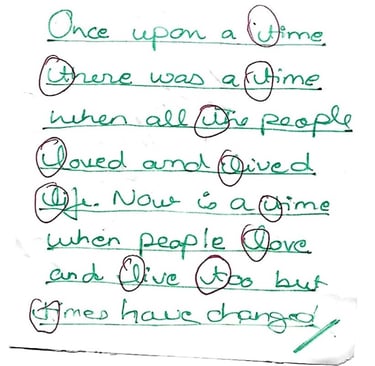 Once upon a time
there was a time
when all the people
loved and lived
life. Now is a time
when people love
and live too but
times have changed